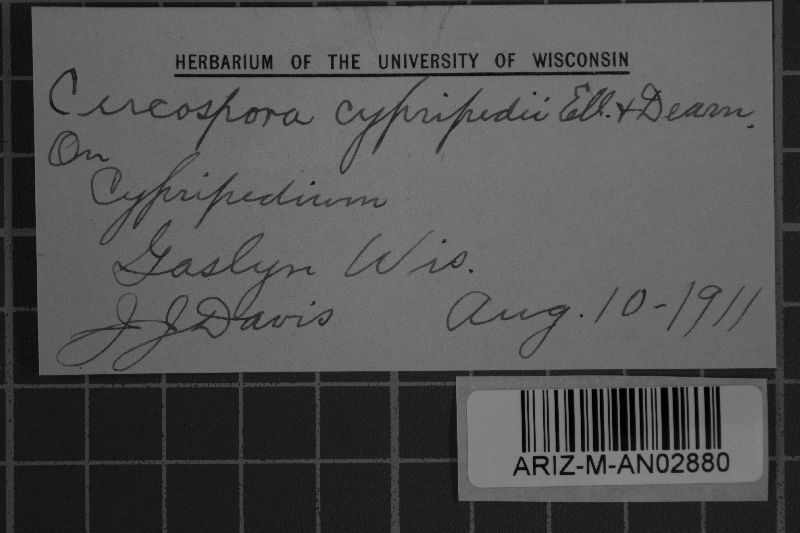 HERBARIUM OF THE UNIVERSITY OF WISCONSIN
Cercospora cypripedii Ell. & Dearn.
On
Cypripedium
Gaslyn Wis.
J J Davis Aug. 10-1911
ARIZ-M-AN02880